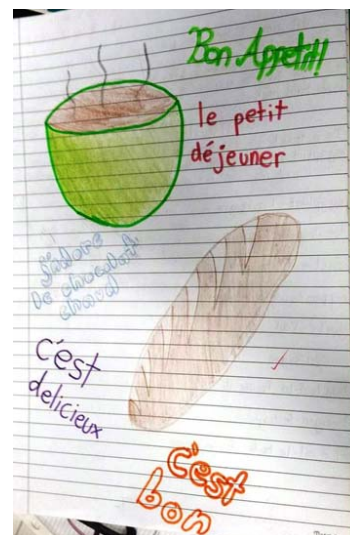 Bon Appetit!
le petit
déjeuner
J'adore
chaud
c'est
delicieux
C'est
bon